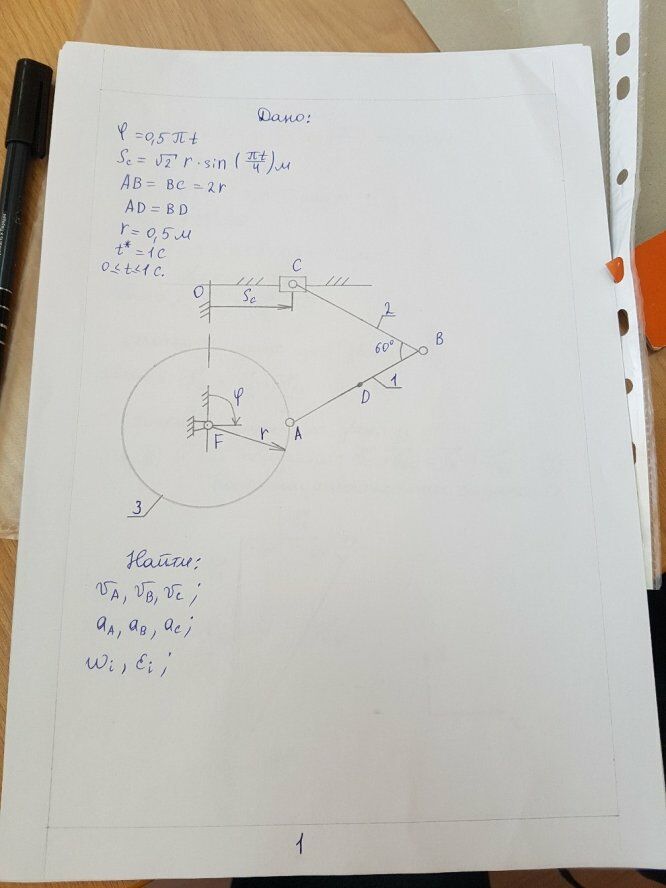 Дано:
φ = 0,5πt
Sc = √2 r · sin (πt/4) м
AB = BC = 2r
AD = BD
r = 0,5 м
t* = 1 c
0 ≤ t ≤ 1 c.
C
O
Sc
2
B
60°
1
D
φ
A
r
F
3
Найти:
vA, vB, vc ;
aA, aB, ac ;
ωi, εi ;
1